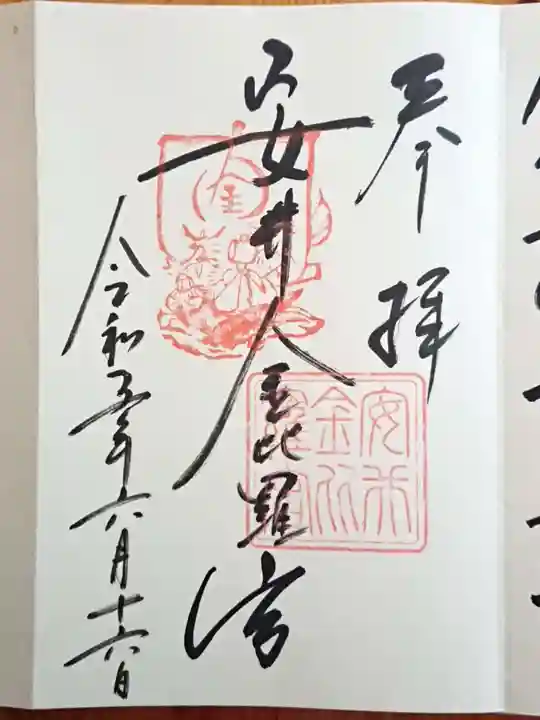 奉拝
安井金毘羅宮
令和五年六月十六日
安井金比羅宮
金